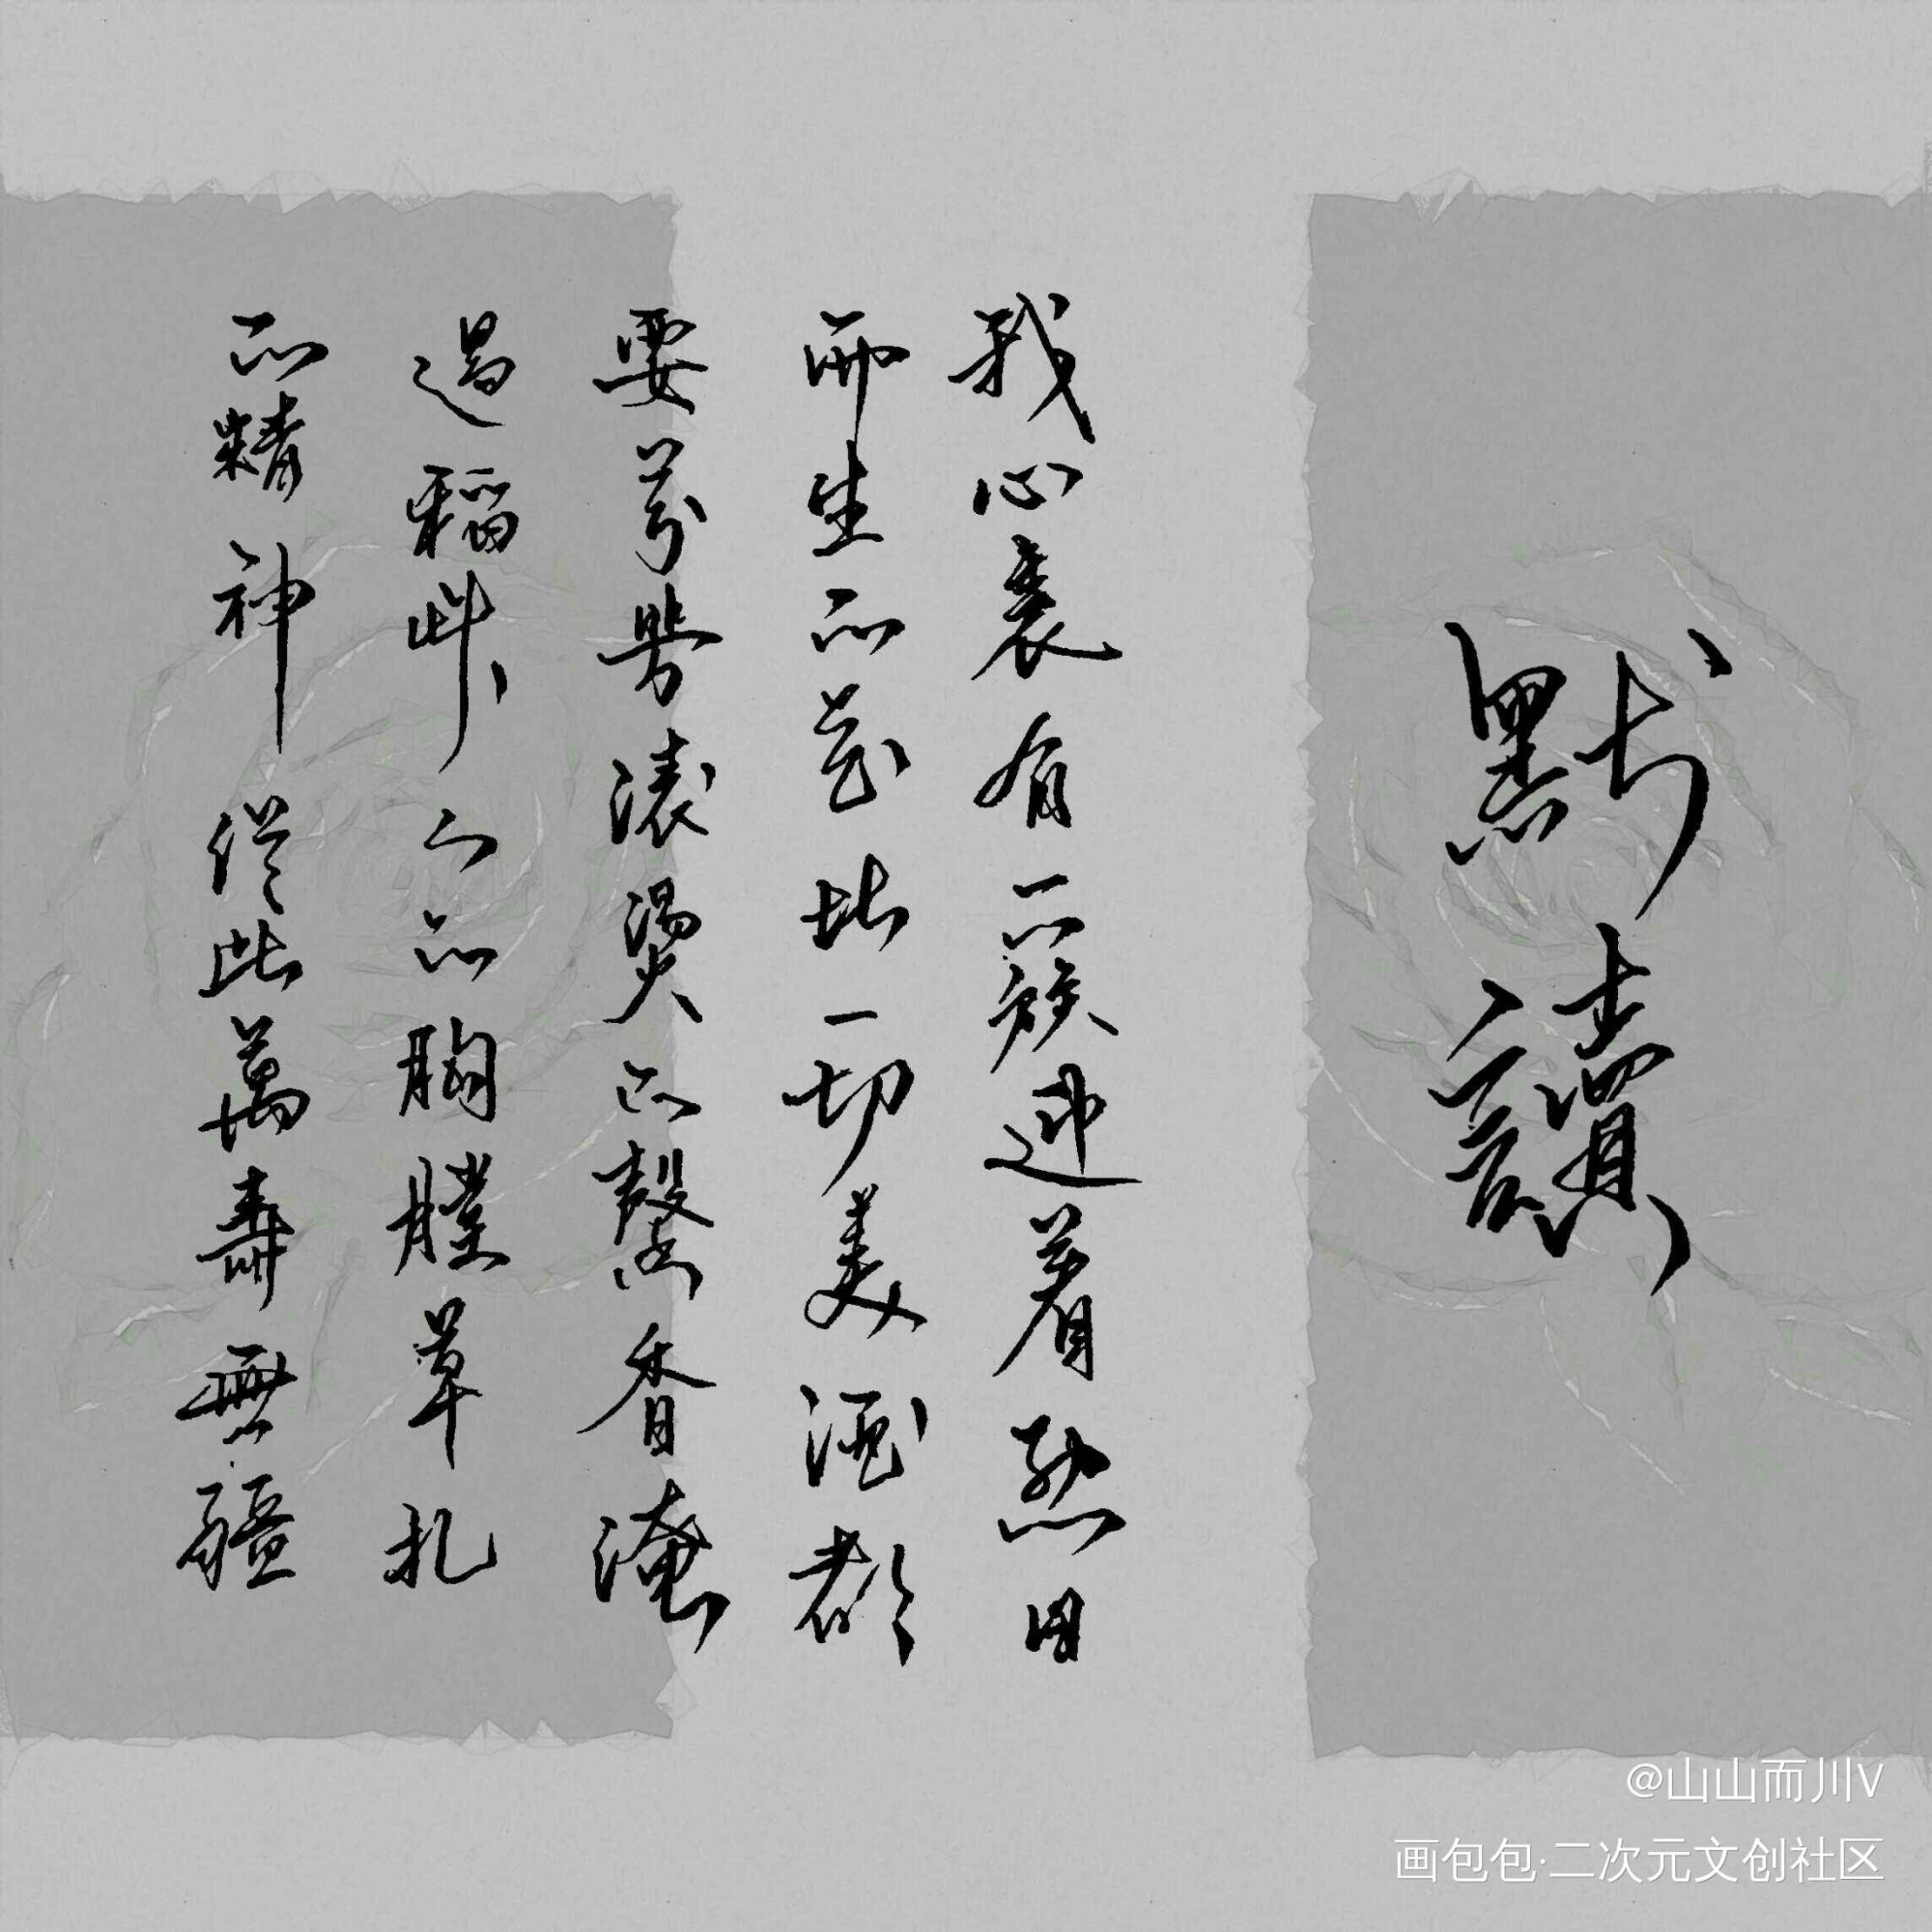 默讀
我心裏有一簇迎着烈日
而生的花比一切美酒都
要芬芳滾燙的馨香淹
過稻艸人的胸膛草扎
的精神從此萬壽無疆
@山山而川V
画包包·二次元文创社区